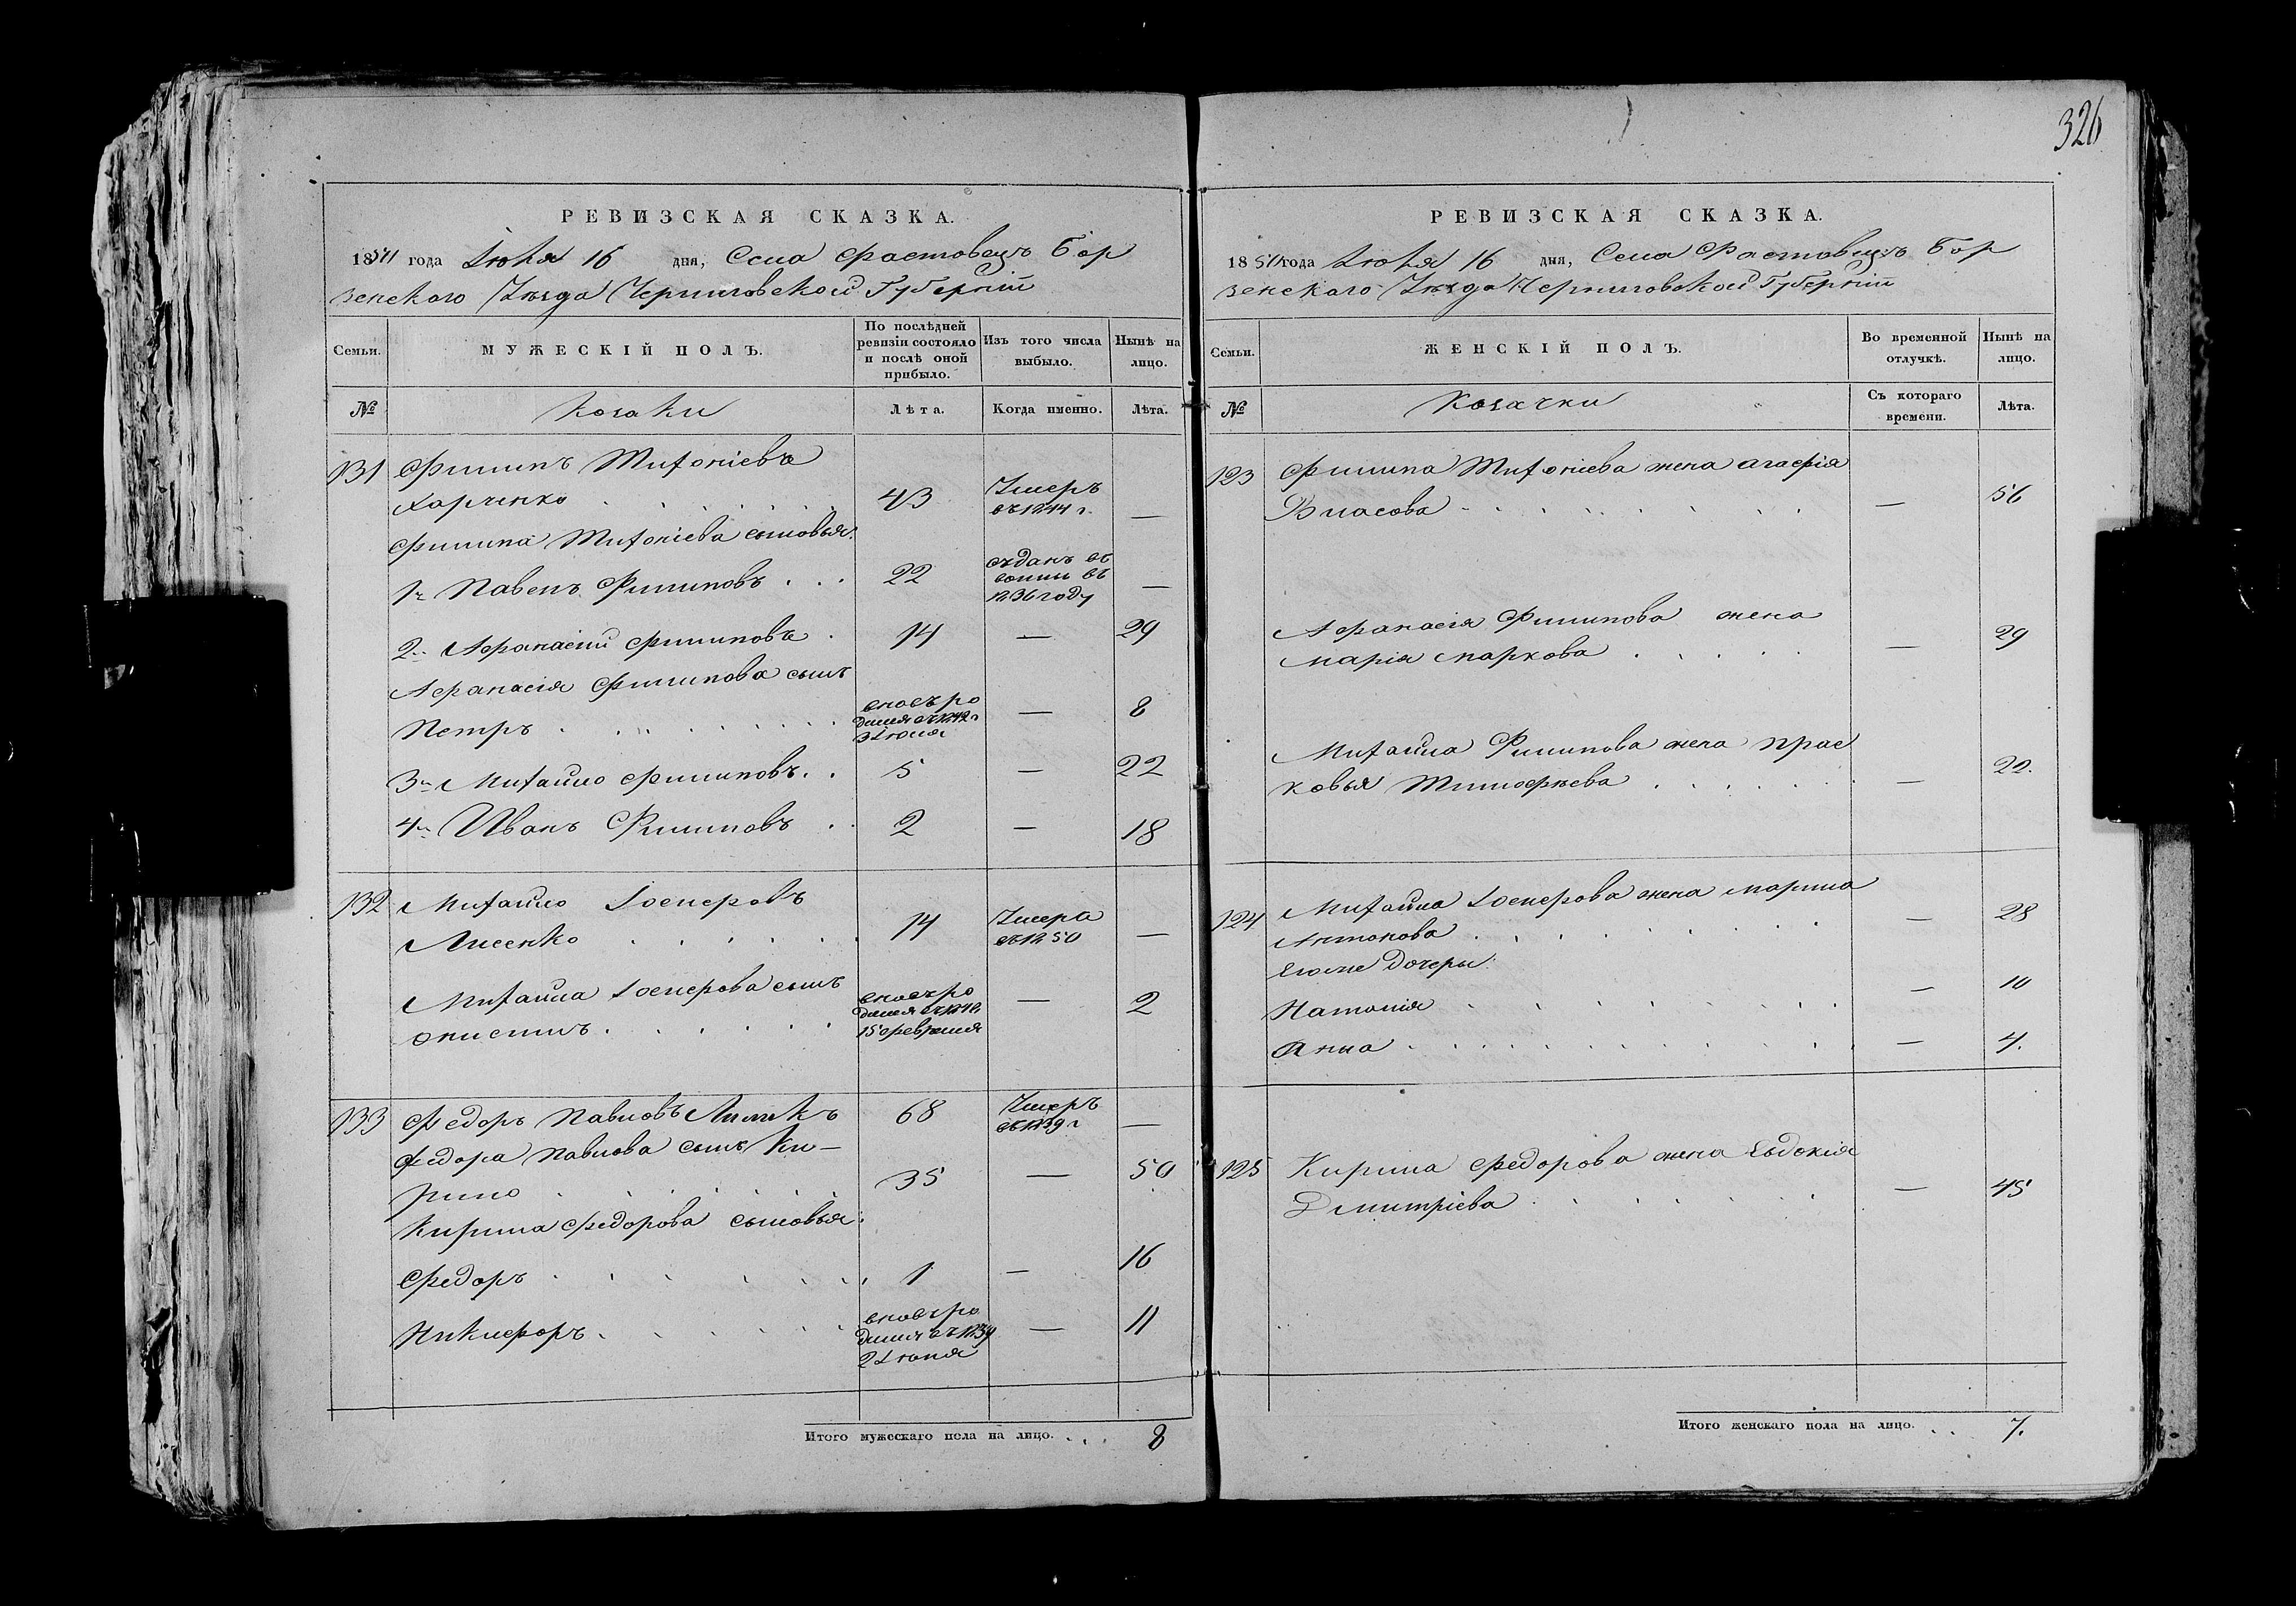 326
РЕВИЗСКАЯ СКАЗКА.
1851 года Июня 16 дня, Села Фастовецъ Бор
зенского Уѣзда Черниговской Губерніи
Семьи.
МУЖЕСКІЙ ПОЛЪ.
По послѣдней
ревизіи состояло
и послѣ оной
прибыло.
Изъ того числа
выбыло.
Нынѣ на
лицо.
№
Козаки
Лѣта.
Когда именно.
Лѣта.
131 Филипъ Тихоніевъ
Харченко 43 Умеръ
въ 1844 г. —
Филипа Тихоніева сыновья:
1й Павелъ Филиповъ 22 въ
1836 году —
2й Афанасий Филиповъ 14 — 29
Афанасія Филипова сынъ
Петръ вновь ро
дился въ 1842 г
3 Июня — 8
3й Михайло Филиповъ 5 — 22
4й Иванъ Филиповъ 2 — 18
132 Михайло Іосиповъ
Лисенко 14 Умеръ
въ 1850 —
Михайла сынъ
вновь ро
дился въ
15 февраля — 2
133 Федоръ Павловъ 68 Умеръ
въ 1839 г —
Федора Павлова сынъ Ки-
рило 35 — 50
Кирила Федорова сыновья:
Федоръ 1 — 16
Никифоръ вновь ро
дился въ 1839
2 Июня — 11
Итого мужескаго пола на лицо. 8
РЕВИЗСКАЯ СКАЗКА.
1851 года Июня 16 дня, Села Фастовецъ Бор
зенского Уѣзда Черниговской Губерніи
Семьи.
ЖЕНСКІЙ ПОЛЪ.
Во временной
отлучкѣ.
Нынѣ на
лицо.
№
Козачки
Съ котораго
времени.
Лѣта.
123 Филипа Тихоніева жена Агафія
Власова — 56
Афанасія Филипова жена
Марія Маркова — 29
Михайла Филипова жена Прас
ковья Тимофѣева — 22.
124 Михайла жена Марина
Антонова — 28
Еюже дочери:
Наталія — 10
Анна — 4.
125 Кирила Федорова жена Евдокія
Дмитріева — 45
Итого женскаго пола на лицо. 7.